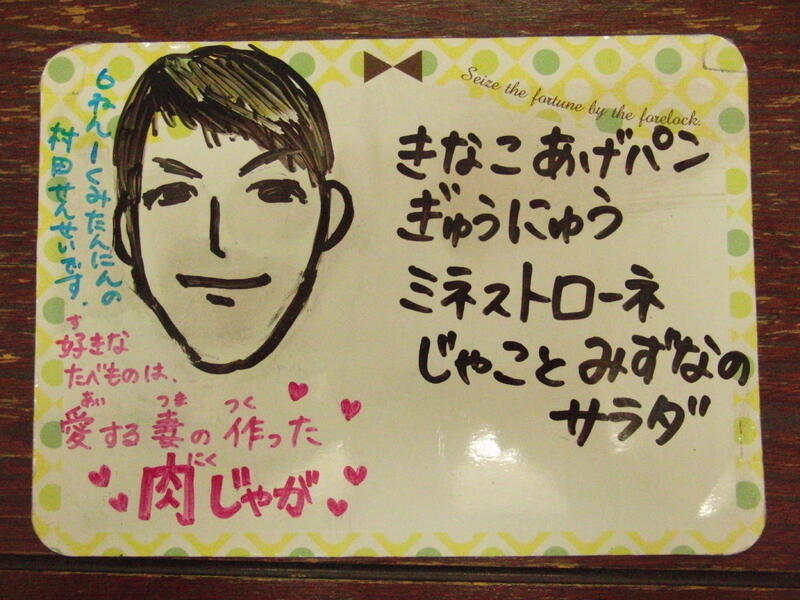 Seize the fortune by the forelock.
きなこあげパン
ぎゅうにゅう
ミネストローネ
じゃことみずなの
サラダ
6ねん1くみたんにんの
村田せんせいです.
す
好きな
たべものは、
あい つま つく
愛する妻の作った
にく
肉じゃが